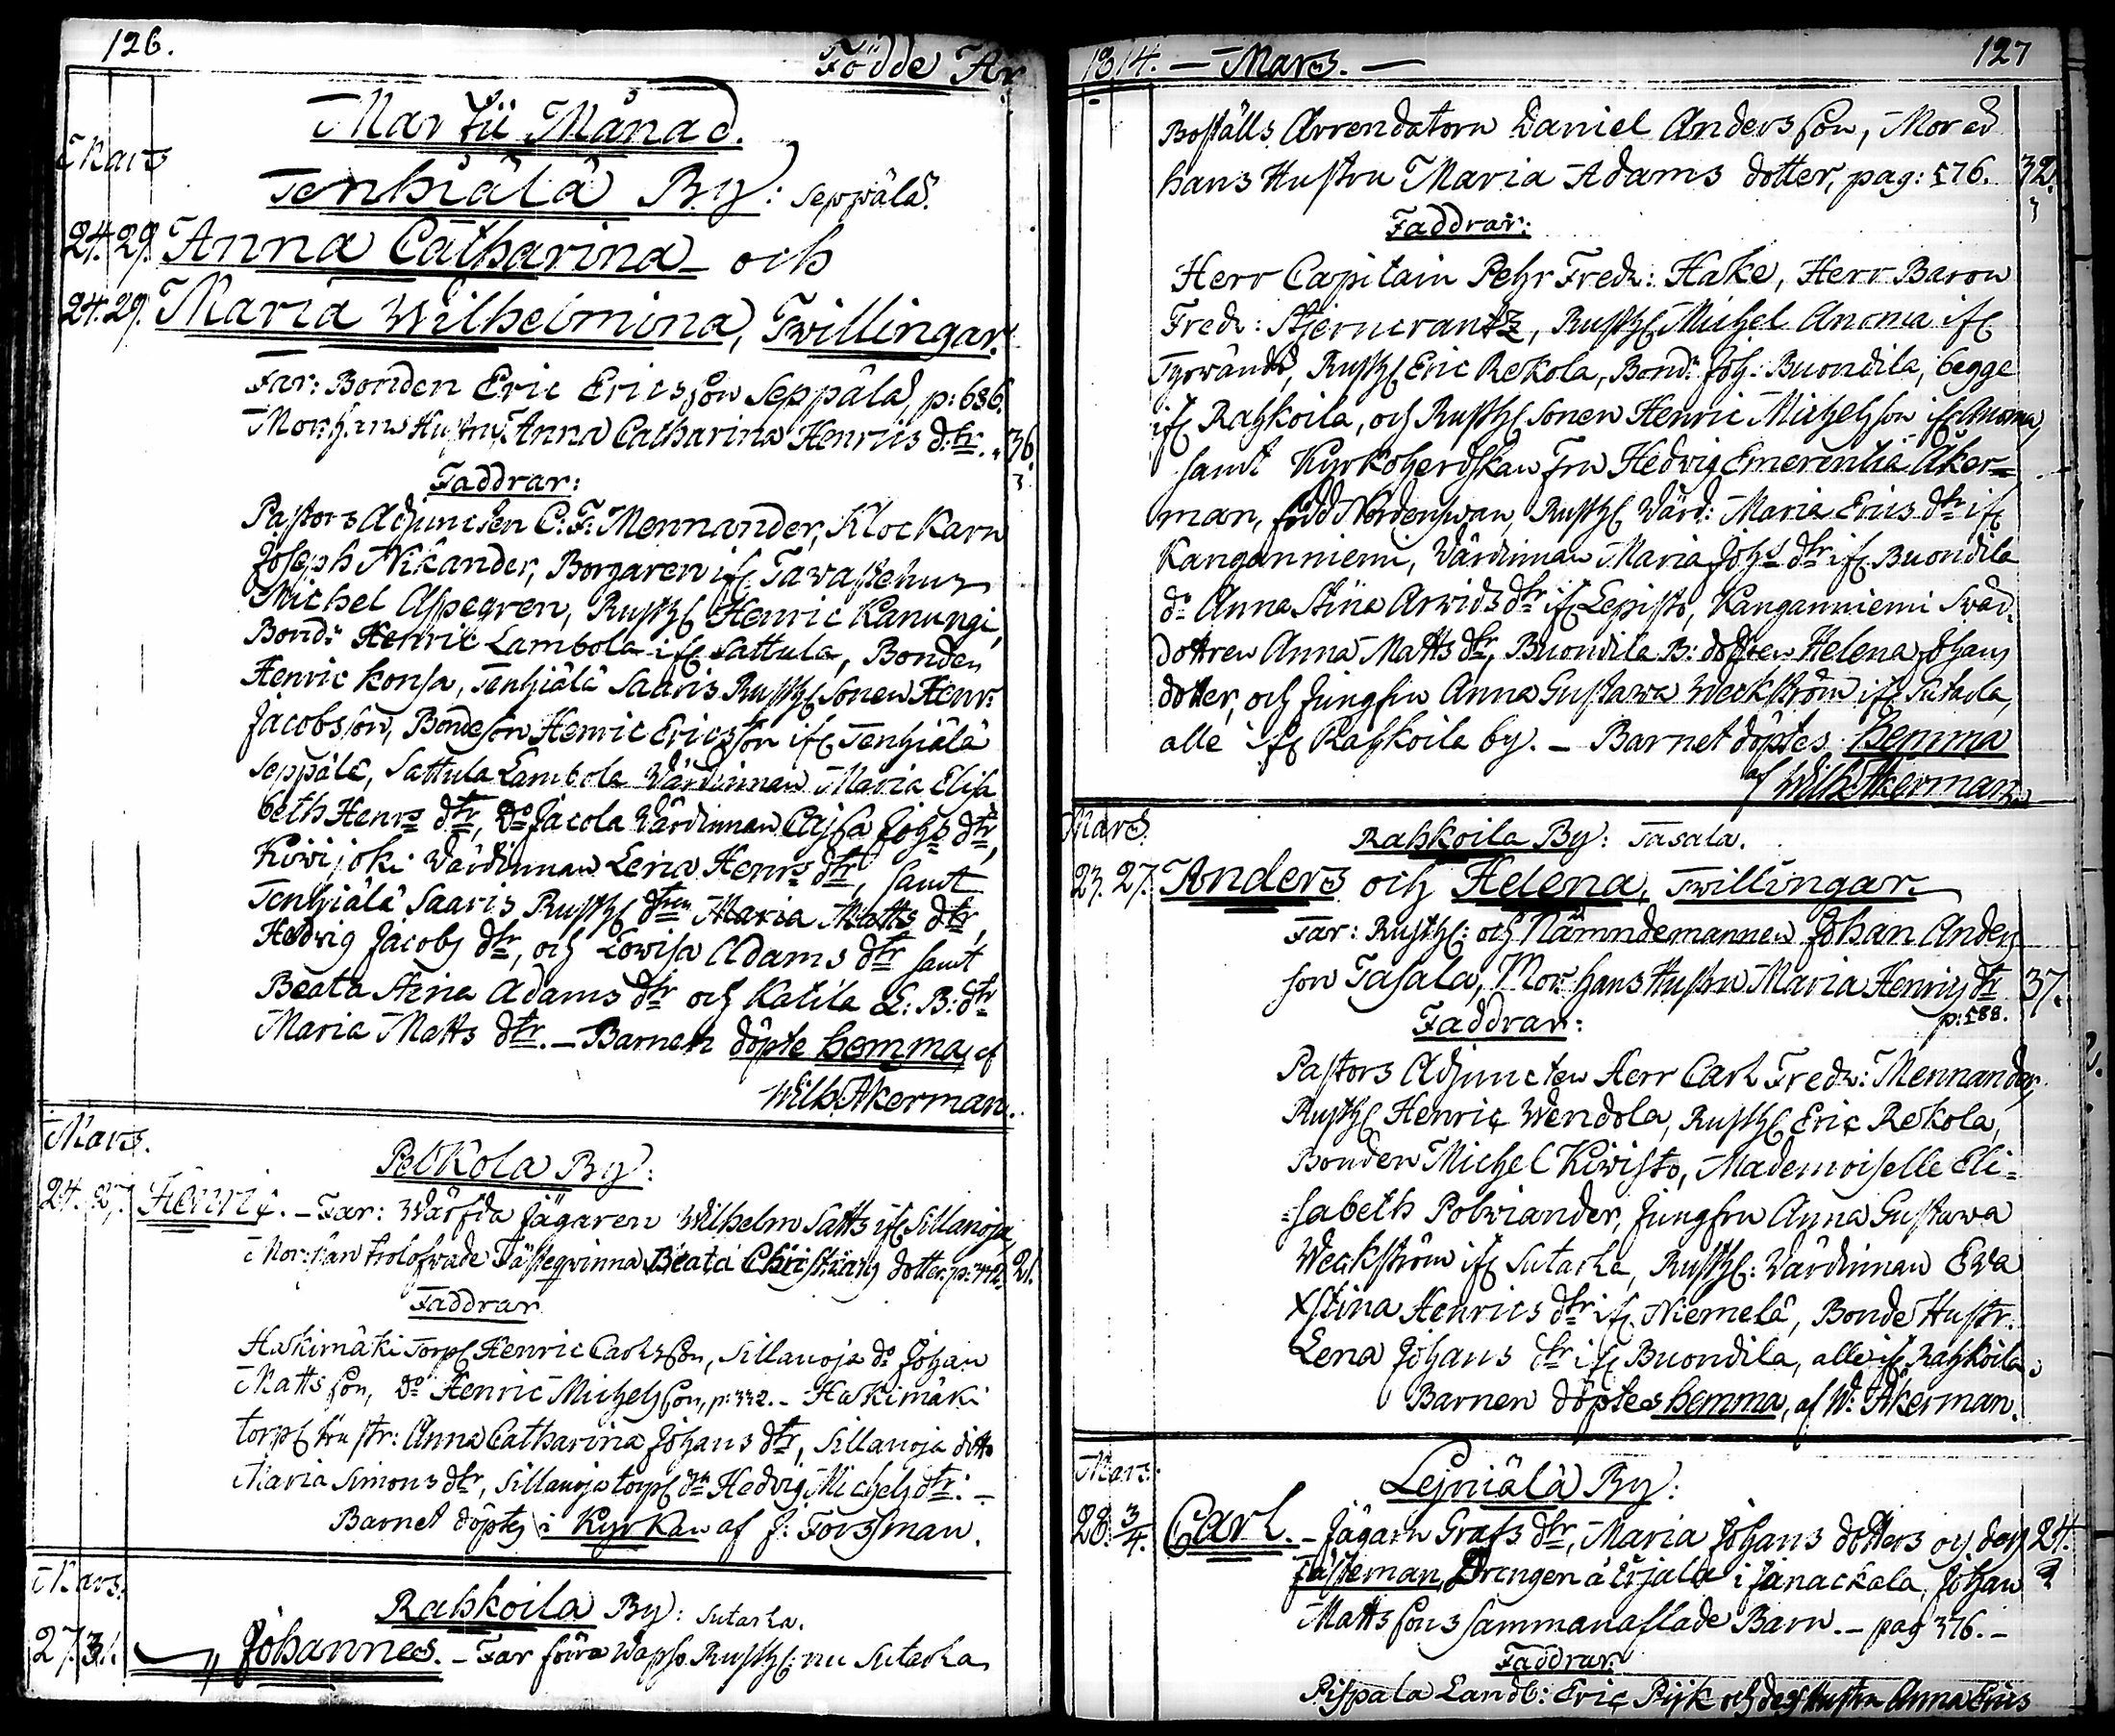 126.
Födde År
Martii Månad.
Mars
Tenhiälä By: Seppälä.
24. 29. Anna Catharina och
24. 29. Maria Wilhelmina, Twillingar.
Far: Bonden Eric Ericsson Seppälä, p: 686.
Mor: hans Hustru Anna Catharina Henrics dtr. 36.
Faddrar:
Pastors Adjuncten C: F: Mennander, Klockarn
Joseph Nikander, Borgaren ifr. Tawastehus
Michel Aspegren, Rusth. Henric Kanungi,
Bond: Henric Lambola ifr Sattula, Bonden
Henric Konsa, Tenhiälä Saaris Rusth. Sonen Henr:
Jacobsson, Bondeson Henric Ericsson ifr Tenhiälä
Seppälä, Sattula Lambola Wärdinnan Maria Elisa
beth Henrs dtr, Do Jacola Wärdinnan Cajsa Johs dtr,
Kiwijoki Wärdinnan Lena Henrs dtr, samt
Tenhiälä Saaris Rusth. dtren Maria Matts dtr,
Hedvig Jacobs dtr, och Lowisa Adams dtr samt
Beata Stina Adams dtr och Katila L: B: dtr
Maria Matts dtr. – Barnen döpte hemma, af
Wilh Åkerman.
Mars.
Pelkola By:
24. 27. Henric. – Far: Wärfda Jägaren Wilhelm Satts ifr Sillanoja,
Mor: han trolofwade Fästeqvinna Beata Christians dotter, p: 21.
Faddrar
Hakimäki Torp. Henric Carlsson, Sillanoja do Johan
Matts son, Do Henric Michelsson, p: 332. – Hakimäki
torp. hustr: Anna Catharina Johans dtr, Sillanoja ditto
Maria Simons dtr, Sillanoja torp. dn Hedvig Michels dtr. –
Barnet döptes i Kyrkan af J: Forssman.
Mars.
Rahkoila By: Sutarla.
27. 31. Johannes. – Far förra Wapso Rusth: nu Sutarla
1814. – Mars. –
127
Boställs Arrendatorn Daniel Andersson, Mor ed
hans Hustru Maria Adams dotter, pag: 576. 32.
Faddrar:
Herr Capitain Pehr Fredr: Hake, Herr Baron
Fredr: Stjerncrantz, Rusth. Michel Anoma ifr
Tyrwändö, Rusth. Eric Rekola, Bond: Joh: Buondila, begge
ifr Rahkoila, och Rusth. Sonen Henric Michelsson ifr Anoma,
samt Kyrkoherdskan Fru Hedvig Emerentia Åker=
man, född Nordenswan, Rusth. Wärd: Maria Erics dtr ifr
Kanganniemi, Wärdinnan Maria Johs dtr ifr Buondila
do Anna Stina Arwids dtr ifr Lepistö, Kanganniemi Swär,
dottren Anna Matts dtr, Buondila B: dottren Helena Johans
dotter, och Jungfru Anna Gustawa Weckström ifr Sutarla,
alle ifr Rahkoila by. – Barnet döptes hemma
af Wilh Åkerman.
Mars.
Rahkoila By: Tasala.
23. 27. Anders och Helena, Twillingar.
Far: Rusth: och Nämndemannen Johan Anders
son Tasala, Mor: hans Hustru Maria Henrics dtr 37.
p: 588.
Faddrar:
Pastors Adjuncten Herr Carl Fredr: Mennander,
Rusth. Henric Wendola, Rusth. Eric Rekola,
Bonden Michel Kiwistö, Mademoiselle Eli=
=sabeth Polviander, Jungfru Anna Gustawa
Weckström ifr Sutarla, Rusth: Wärdinnan Ewa
Xstina Henrics dtr ifr Niemelä, Bonde Hustr.
Lena Johans dtr ifr Buondila, alle ifr Rahkoila.
Barnen döptes hemma, af W: Åkerman.
Mars.
Lejniälä By:
28. 3/4. Carl. – Jägarn Grafs dtr, Maria Johans dotters och dess 24.
fästeman, Drengen å Erjala i Janackala, Johan
Mattssons sammanaflade Barn. – pag 376. –
Faddrar
Pispala Landb: Eric Pijk och dess Hustru Anna Erics